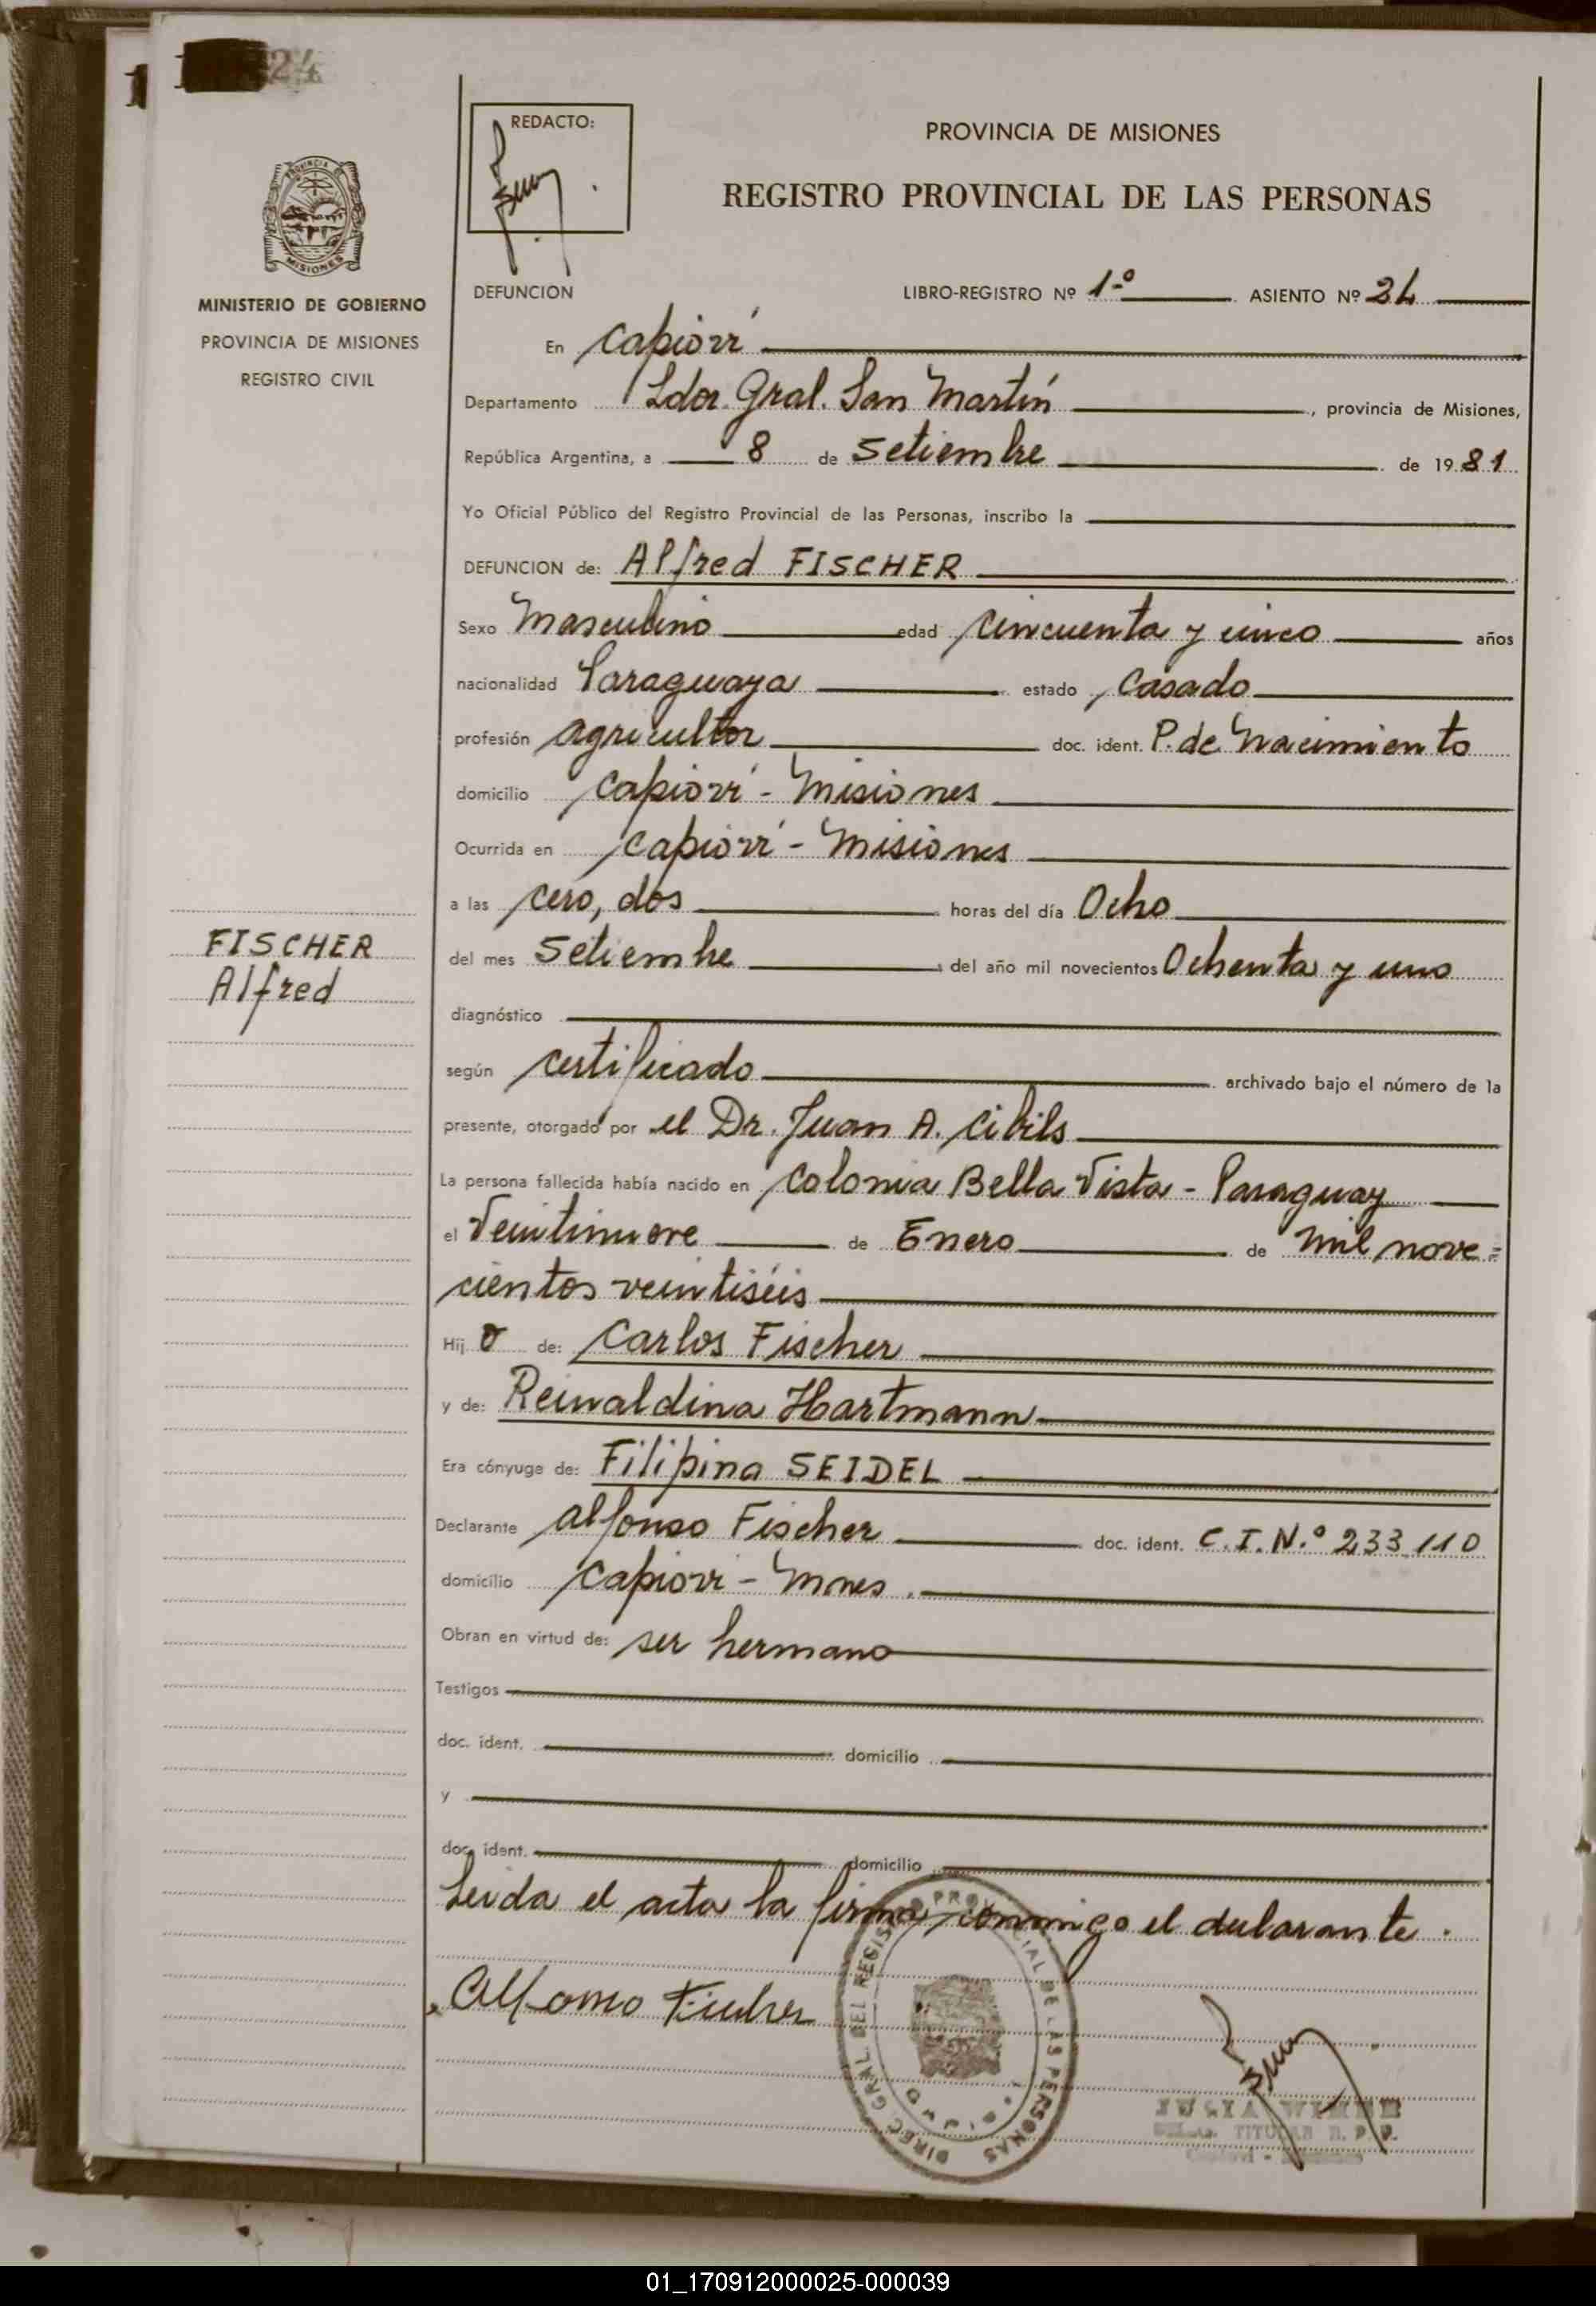 24
REDACTO:
PROVINCIA DE MISIONES
REGISTRO PROVINCIAL DE LAS PERSONAS
PROVINCIA
MISIONES
MINISTERIO DE GOBIERNO
PROVINCIA DE MISIONES
REGISTRO CIVIL
DEFUNCION LIBRO-REGISTRO Nº 1º ASIENTO Nº 24
En Capioví
Departamento Ldor. Gral. San Martín, provincia de Misiones,
República Argentina, a 8 de Setiembre de 1981
Yo Oficial Público del Registro Provincial de las Personas, inscribo la
DEFUNCION de: Alfred FISCHER
Sexo Masculino edad Cincuenta y cinco años
nacionalidad Paraguaya estado Casado
profesión agricultor doc. ident. P. de Nacimiento
domicilio Capioví - Misiones
Ocurrida en Capioví - Misiones
a las cero, dos horas del día Ocho
FISCHER
Alfred
del mes Setiembre del año mil novecientos Ochenta y uno
diagnóstico
según certificado archivado bajo el número de la
presente, otorgado por el Dr. Juan A. Cibils
La persona fallecida había nacido en Colonia Bella Vista - Paraguay
el Veintinueve de Enero de mil nove=
cientos veintiséis
Hij o de: Carlos Fischer
y de: Reinaldina Hartmann
Era cónyuge de: Filipina SEIDEL
Declarante Alfonso Fischer doc. ident. C.I.N.º 233.110
domicilio Capiovi - Mnes.
Obran en virtud de: ser hermano
Testigos
doc. ident. domicilio
y
doc. ident. domicilio
Leida el acta la firma conmigo el declarante.
Alfonso Fischer
DIREC. GRAL. DEL REGISTRO PROVINCIAL DE LAS PERSONAS
TITULAR R. P. P.
01_170912000025-000039